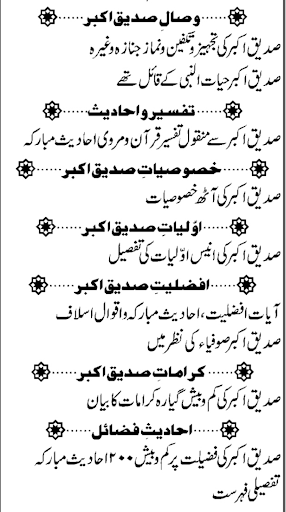 وصالِ صدیق اکبر
صدیق اکبر کی تجہیز و تکفین و نماز جنازہ وغیرہ
صدیق اکبر حیات النبی کے قائل تھے
تفسیر و احادیث
صدیق اکبر سے منقول تفسیر قرآن و مروی احادیث مبارکہ
خصوصیاتِ صدیق اکبر
صدیق اکبر کی آٹھ خصوصیات
اوّلیاتِ صدیق اکبر
صدیق اکبر کی انیس اوّلیات کی تفصیل
افضلیتِ صدیق اکبر
آیات افضلیت، احادیث مبارکہ و اقوال اسلاف
صدیق اکبر صوفیاء کی نظر میں
کراماتِ صدیق اکبر
صدیق اکبر کی کم و بیش گیارہ کرامات کا بیان
احادیثِ فضائل
صدیق اکبر کی فضیلت پر کم و بیش ۲۰۰ احادیث مبارکہ
تفصیلی فہرست